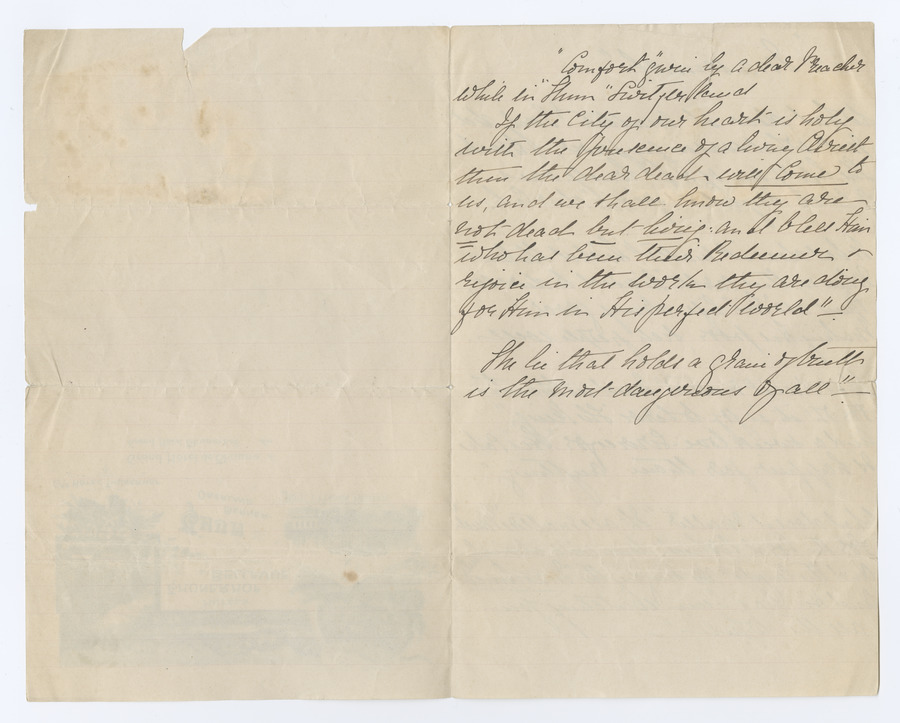 "Comfort" given by a dear Preacher
while in "Thun" Switzerland
If the City of our heart is holy
with the presence of a living Christ
then the dear dead will come to
us, and we shall know they are
not dead but living: and bless Him
who has been their Redeemer &
rejoice in the work they are doing
for Him in His perfect world" –
The lie that holds a grain of truth
is the most dangerous of all" –